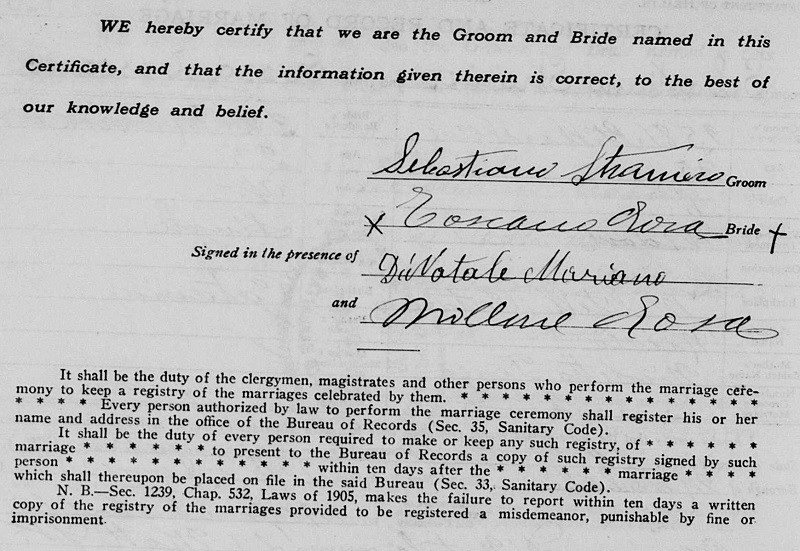 WE hereby certify that we are the Groom and Bride named in this
Certificate, and that the information given therein is correct, to the best of
our knowledge and belief.
Sebastiano Straniero Groom
x Toscano Rosa Bride †
Signed in the presence of DiNatale Mariano
and Rosa
It shall be the duty of the clergymen, magistrates and other persons who perform the marriage cere-
mony to keep a registry of the marriages celebrated by them. * * * * * * * * * * * * * *
* * * * Every person authorized by law to perform the marriage ceremony shall register his or her
name and address in the office of the Bureau of Records (Sec. 35, Sanitary Code).
It shall be the duty of every person required to make or keep any such registry, of * * * * * *
marriage * * * * * * to present to the Bureau of Records a copy of such registry signed by such
person * * * * * * * * * * * * within ten days after the * * * * * * marriage * * * *
which shall thereupon be placed on file in the said Bureau (Sec. 33, Sanitary Code).
N. B.—Sec. 1239, Chap. 532, Laws of 1905, makes the failure to report within ten days a written
copy of the registry of the marriages provided to be registered a misdemeanor, punishable by fine or
imprisonment.